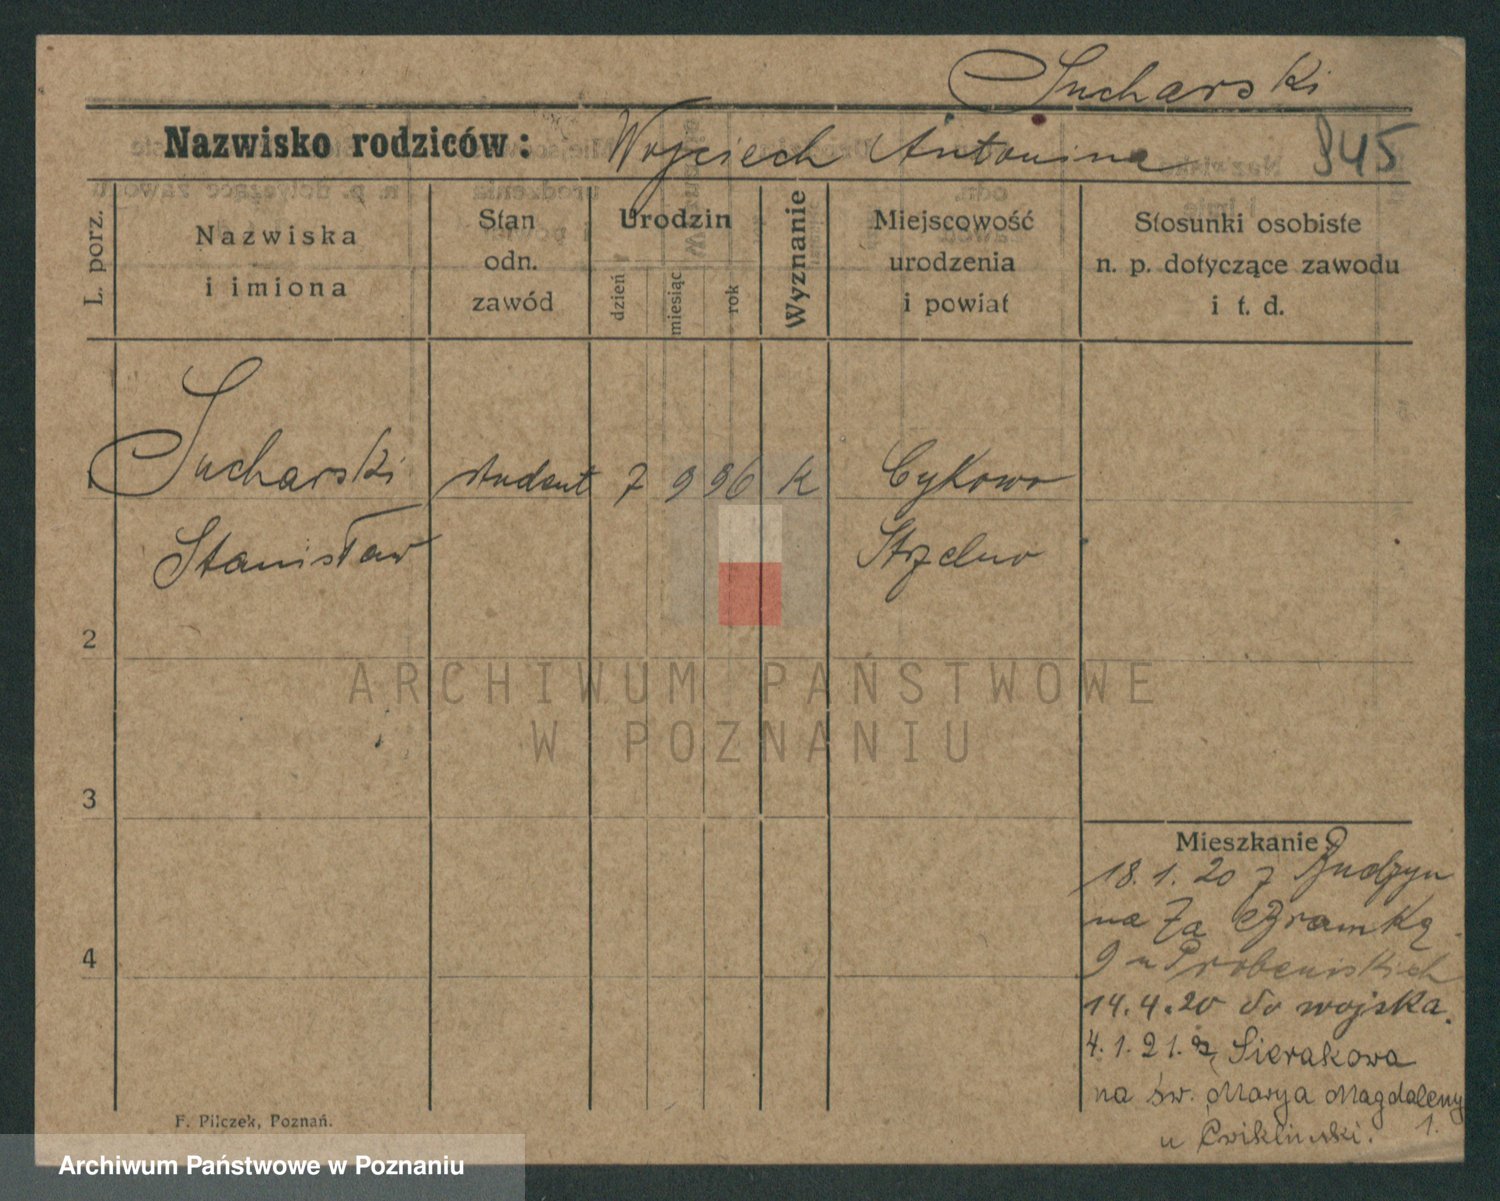 Sucharski
Nazwisko rodziców: Wojciech Antonina 945
L. porz.
Nazwiska
i imiona
Stan
odn.
zawód
Urodzin
dzień
miesiąc
rok
Wyznanie
Miejscowość
urodzenia
i powiat
Stosunki osobiste
n. p. dotyczące zawodu
i t. d.
Sucharski student 7 9 96 k Cykowo
Stanisław Strzelno
2
3
4
Mieszkanie
18.1.20 z Budzyn
na Za Bramką
9 u
14.4.20 do wojska.
4.1.21. z Sierakowa
na św. Marya Magdaleny
1.
u Ćwikliński.
F. Pilczek, Poznań.
ARCHIWUM PAŃSTWOWE
W POZNANIU
Archiwum Państwowe w Poznaniu